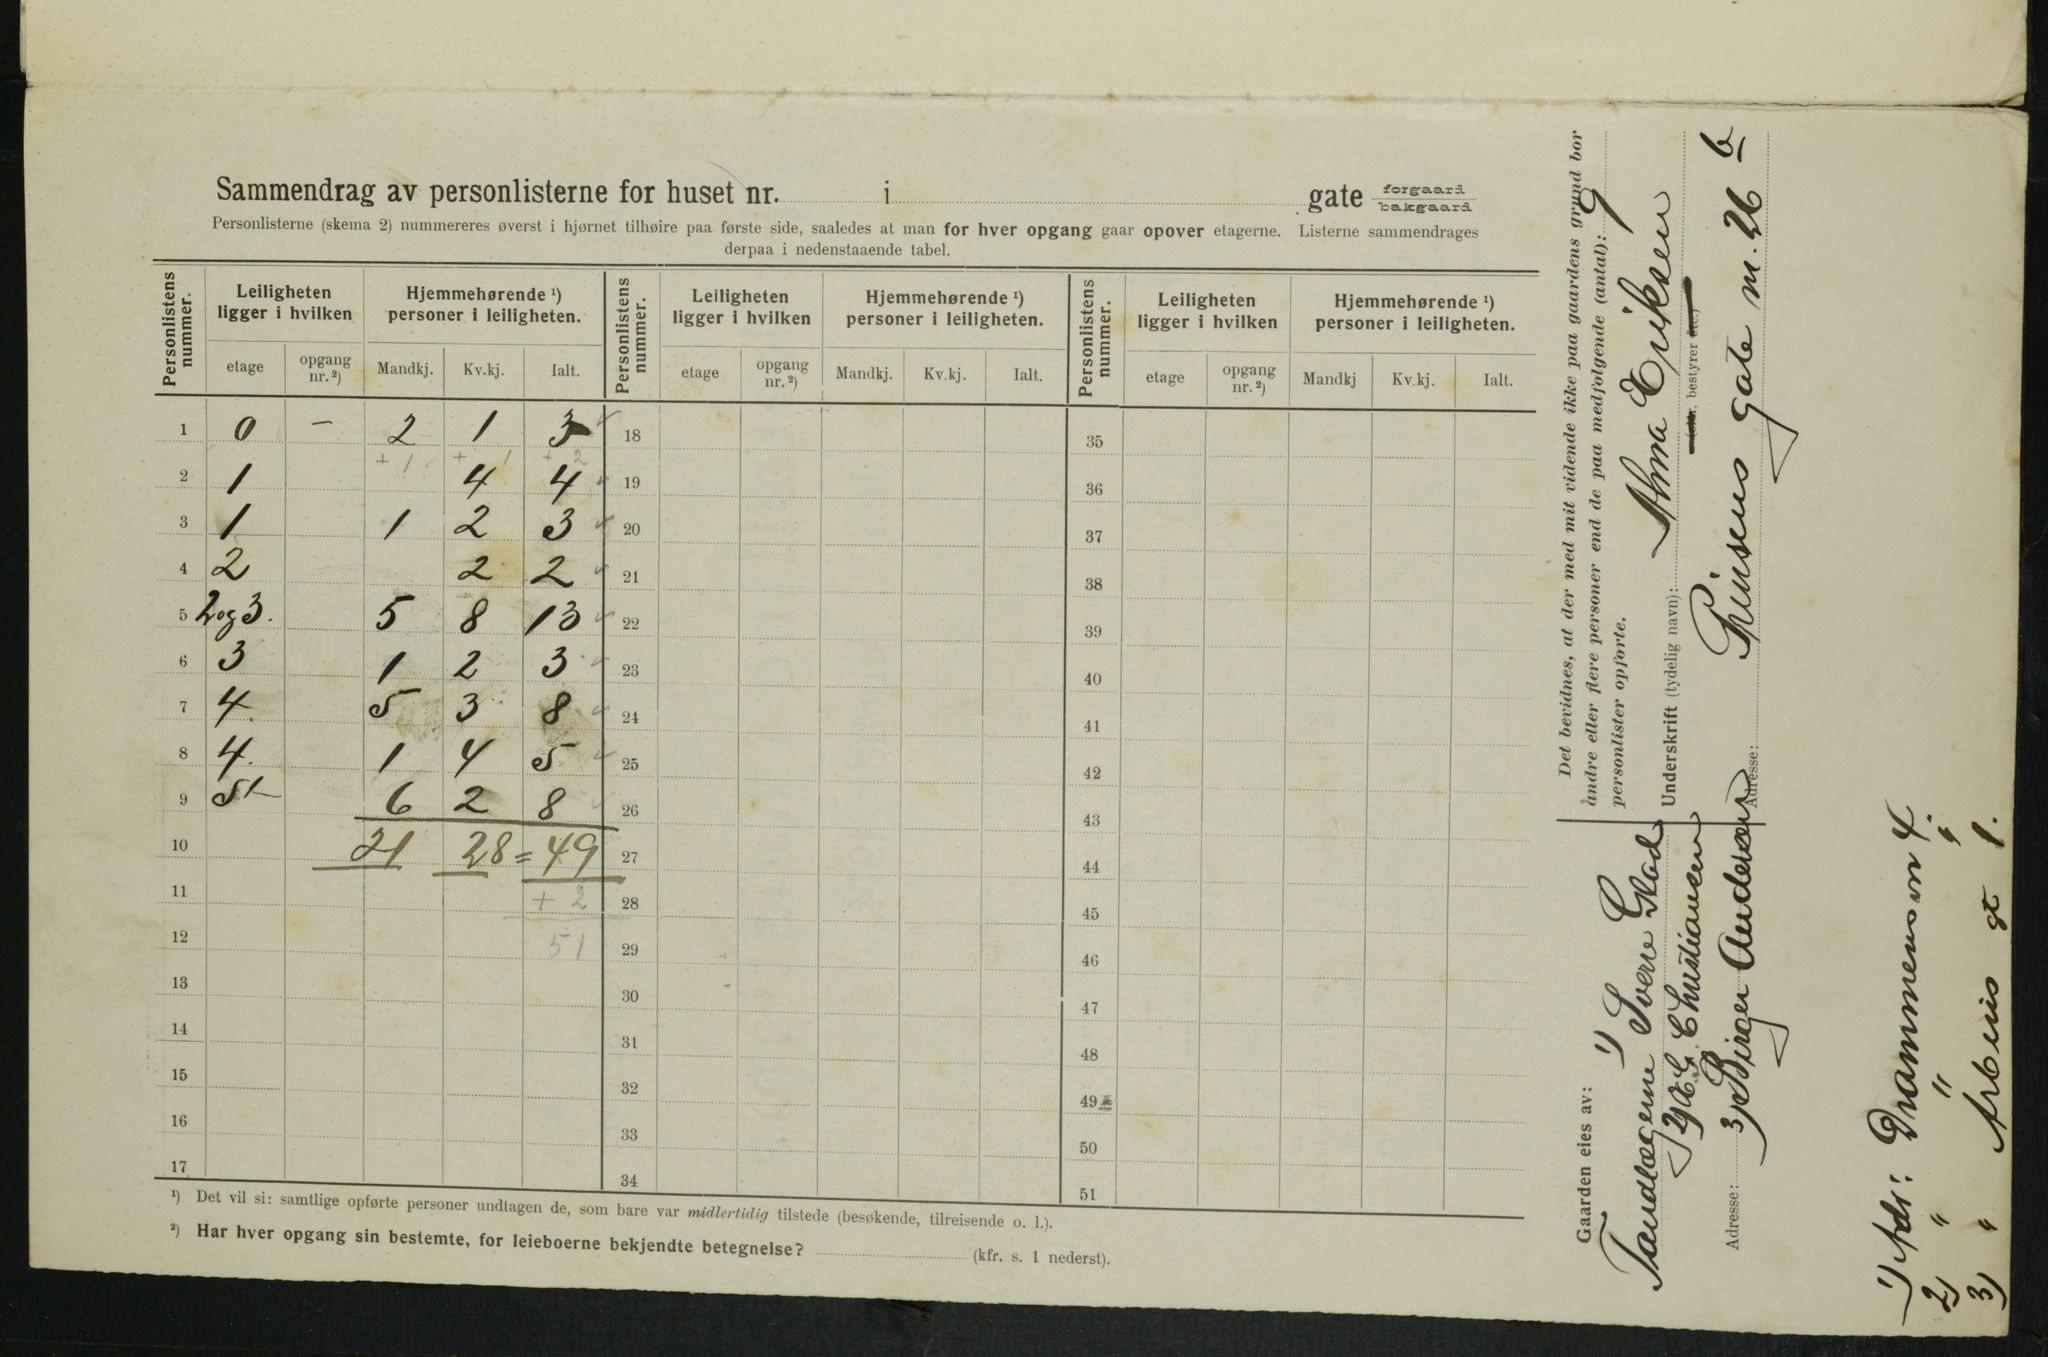 Sammendrag av personlisterne for huset nr. i gate forgaard bakgaard
Personlisterne (skema 2) nummereres øverst i hjørnet tilhøire paa første side, saaledes at man for hver opgang gaar opover etagerne. Listerne sammendrages
derpaa i nedenstaaende tabel.
Personlistens nummer. Leiligheten ligger i hvilken Hjemmehørende ¹) personer i leiligheten. Personlistens nummer. Leiligheten ligger i hvilken Hjemmehørende ¹) personer i leiligheten. Personlistens nummer. Leiligheten ligger i hvilken Hjemmehørende ¹) personer i leiligheten.
etage opgang nr. ²) Mandkj. Kv.kj. Ialt. etage opgang nr. ²) Mandkj. Kv.kj. Ialt. etage opgang nr. ²) Mandkj Kv.kj. Ialt.
1 0 — 2 1 3 18 35
+ 1 + 1 + 2
2 1 4 4 19 36
3 1 1 2 3 20 37
4 2 2 2 21 38
5 2 og 3. 5 8 13 22 39
6 3 1 2 3 23 40
7 4. 5 3 8 24 41
8 4. 1 4 5 25 42
9 St 6 2 8 26 43
10 21 28 = 49 27 44
11 + 2 28 45
12 51 29 46
13 30 47
14 31 48
15 32 49
16 33 50
17 34 51
¹) Det vil si: samtlige opførte personer undtagen de, som bare var midlertidig tilstede (besøkende, tilreisende o. l.).
²) Har hver opgang sin bestemte, for leieboerne bekjendte betegnelse? (kfr. s. 1 nederst).
Det bevidnes, at der med mit vidende ikke paa gaardens grund bor
andre eller flere personer end de paa medfølgende (antal): 9
personlister opførte.
Underskrift (tydelig navn): Alma Eriksen
bestyrer
Adresse: Prinsens gate nr. 26 b
Gaarden eies av: 1) Tandlægerne Sverre Glad
2) Christiansen
Adresse: 3) Birger Andersen
1) Adr: Drammensv 4.
2) " " "
3) " Arbeins gt 1.